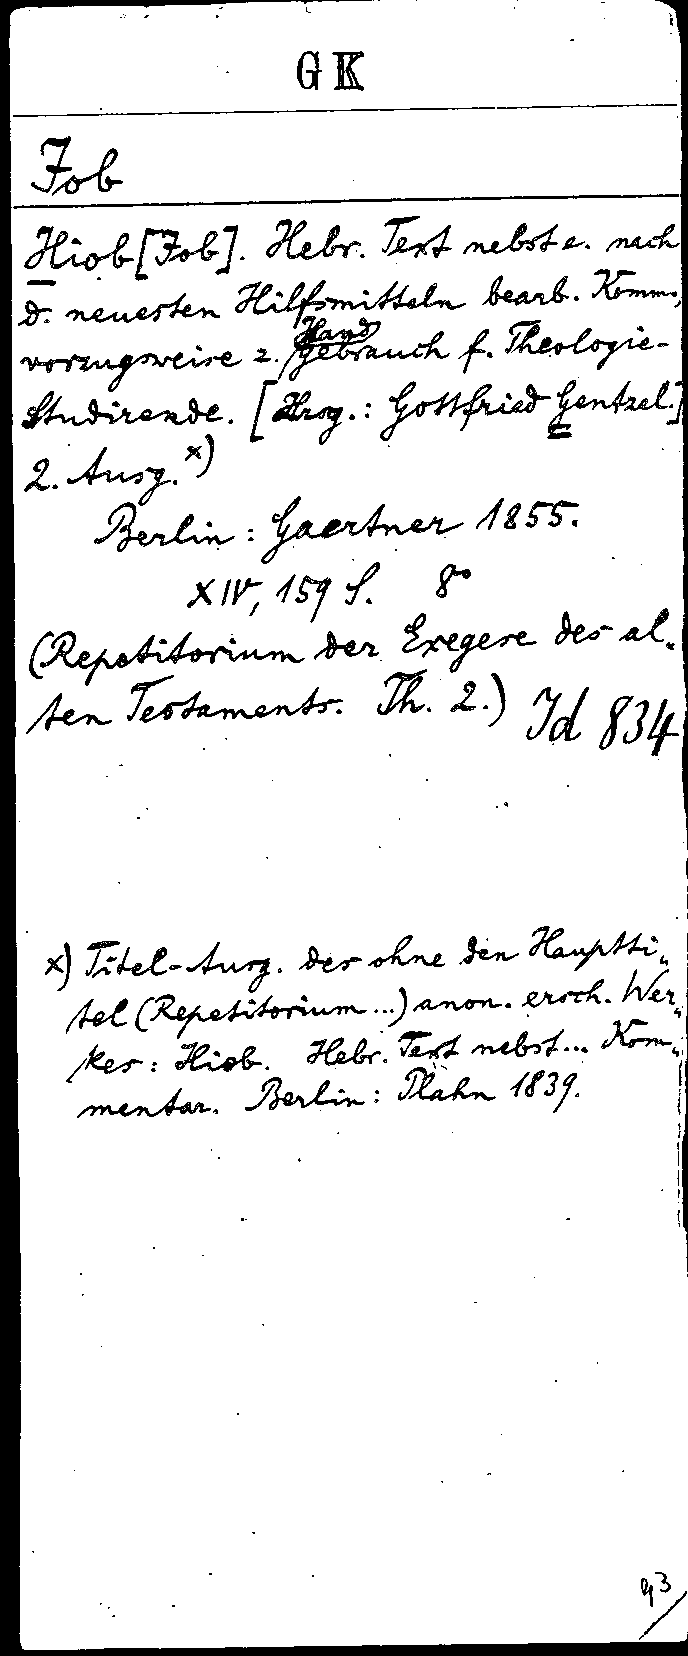 GK
Job
Hiob [Job]. Hebr. Text nebst e. nach
d. neuesten Hilfsmitteln bearb. Komm.,
vorzugsweise z. Handgebrauch f. Theologie-
Studirende. [Hrsg.: Gottfried Gentzel.]
2. Ausg. x)
Berlin: Gaertner 1855.
XIV, 159 S. 8°
(Repetitorium der Exegese des al-
ten Testaments. Th. 2.) Id 834
x) Titel-Ausg. des ohne den Hauptti-
tel (Repetitorium...) anon. ersch. Wer-
kes: Hiob. Hebr. Text nebst... Kom-
mentar. Berlin: Plahn 1839.
93